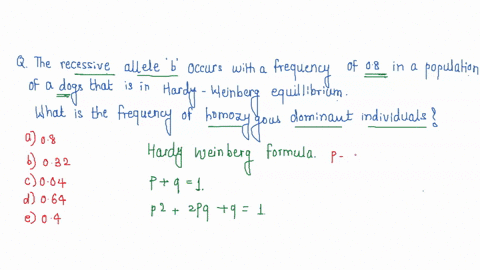 Q. The recessive allele 'b' occurs with a frequency of 0.8 in a population
of a dogs that is in Hardy-Weinberg equilibrium.
What is the frequency of homozygous dominant individuals?
a) 0.8
b) 0.32
c) 0.04
d) 0.64
e) 0.4
Hardy weinberg formula. P-
P+q=1.
P2 + 2Pq +q = 1